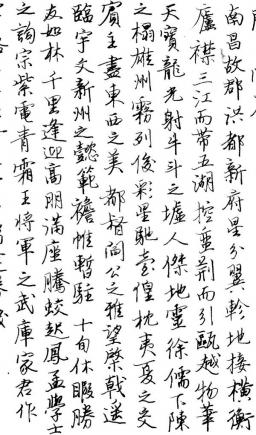 南昌故郡洪都新府星分翼軫地接橫衡
廬襟三江而帶五湖控蠻荊而引甌越物華
天寶龍光射牛斗之墟人傑地靈徐儒下陳
之榻雄州霧列俊彩星馳臺惶枕夷夏之交
賓主盡東西之美都督閻公之雅望棨戟遙
臨宇文新州之懿範襜帷暫駐十旬休暇勝
友如林千里逢迎高朋滿座騰蛟起鳳孟學士
之詞宗紫電青霜王將軍之武庫家君作